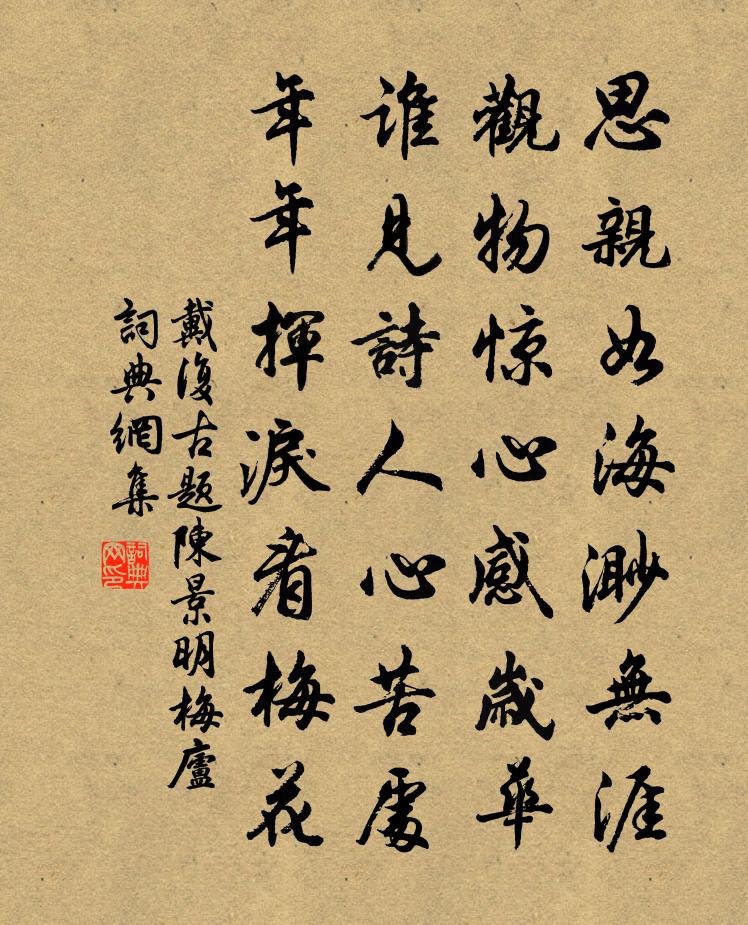 思親如海渺無涯
觀物惊心感歲華
谁見詩人心苦處
年年揮淚看梅花
戴復古题陳景明梅廬
詞典網集
詞典网印